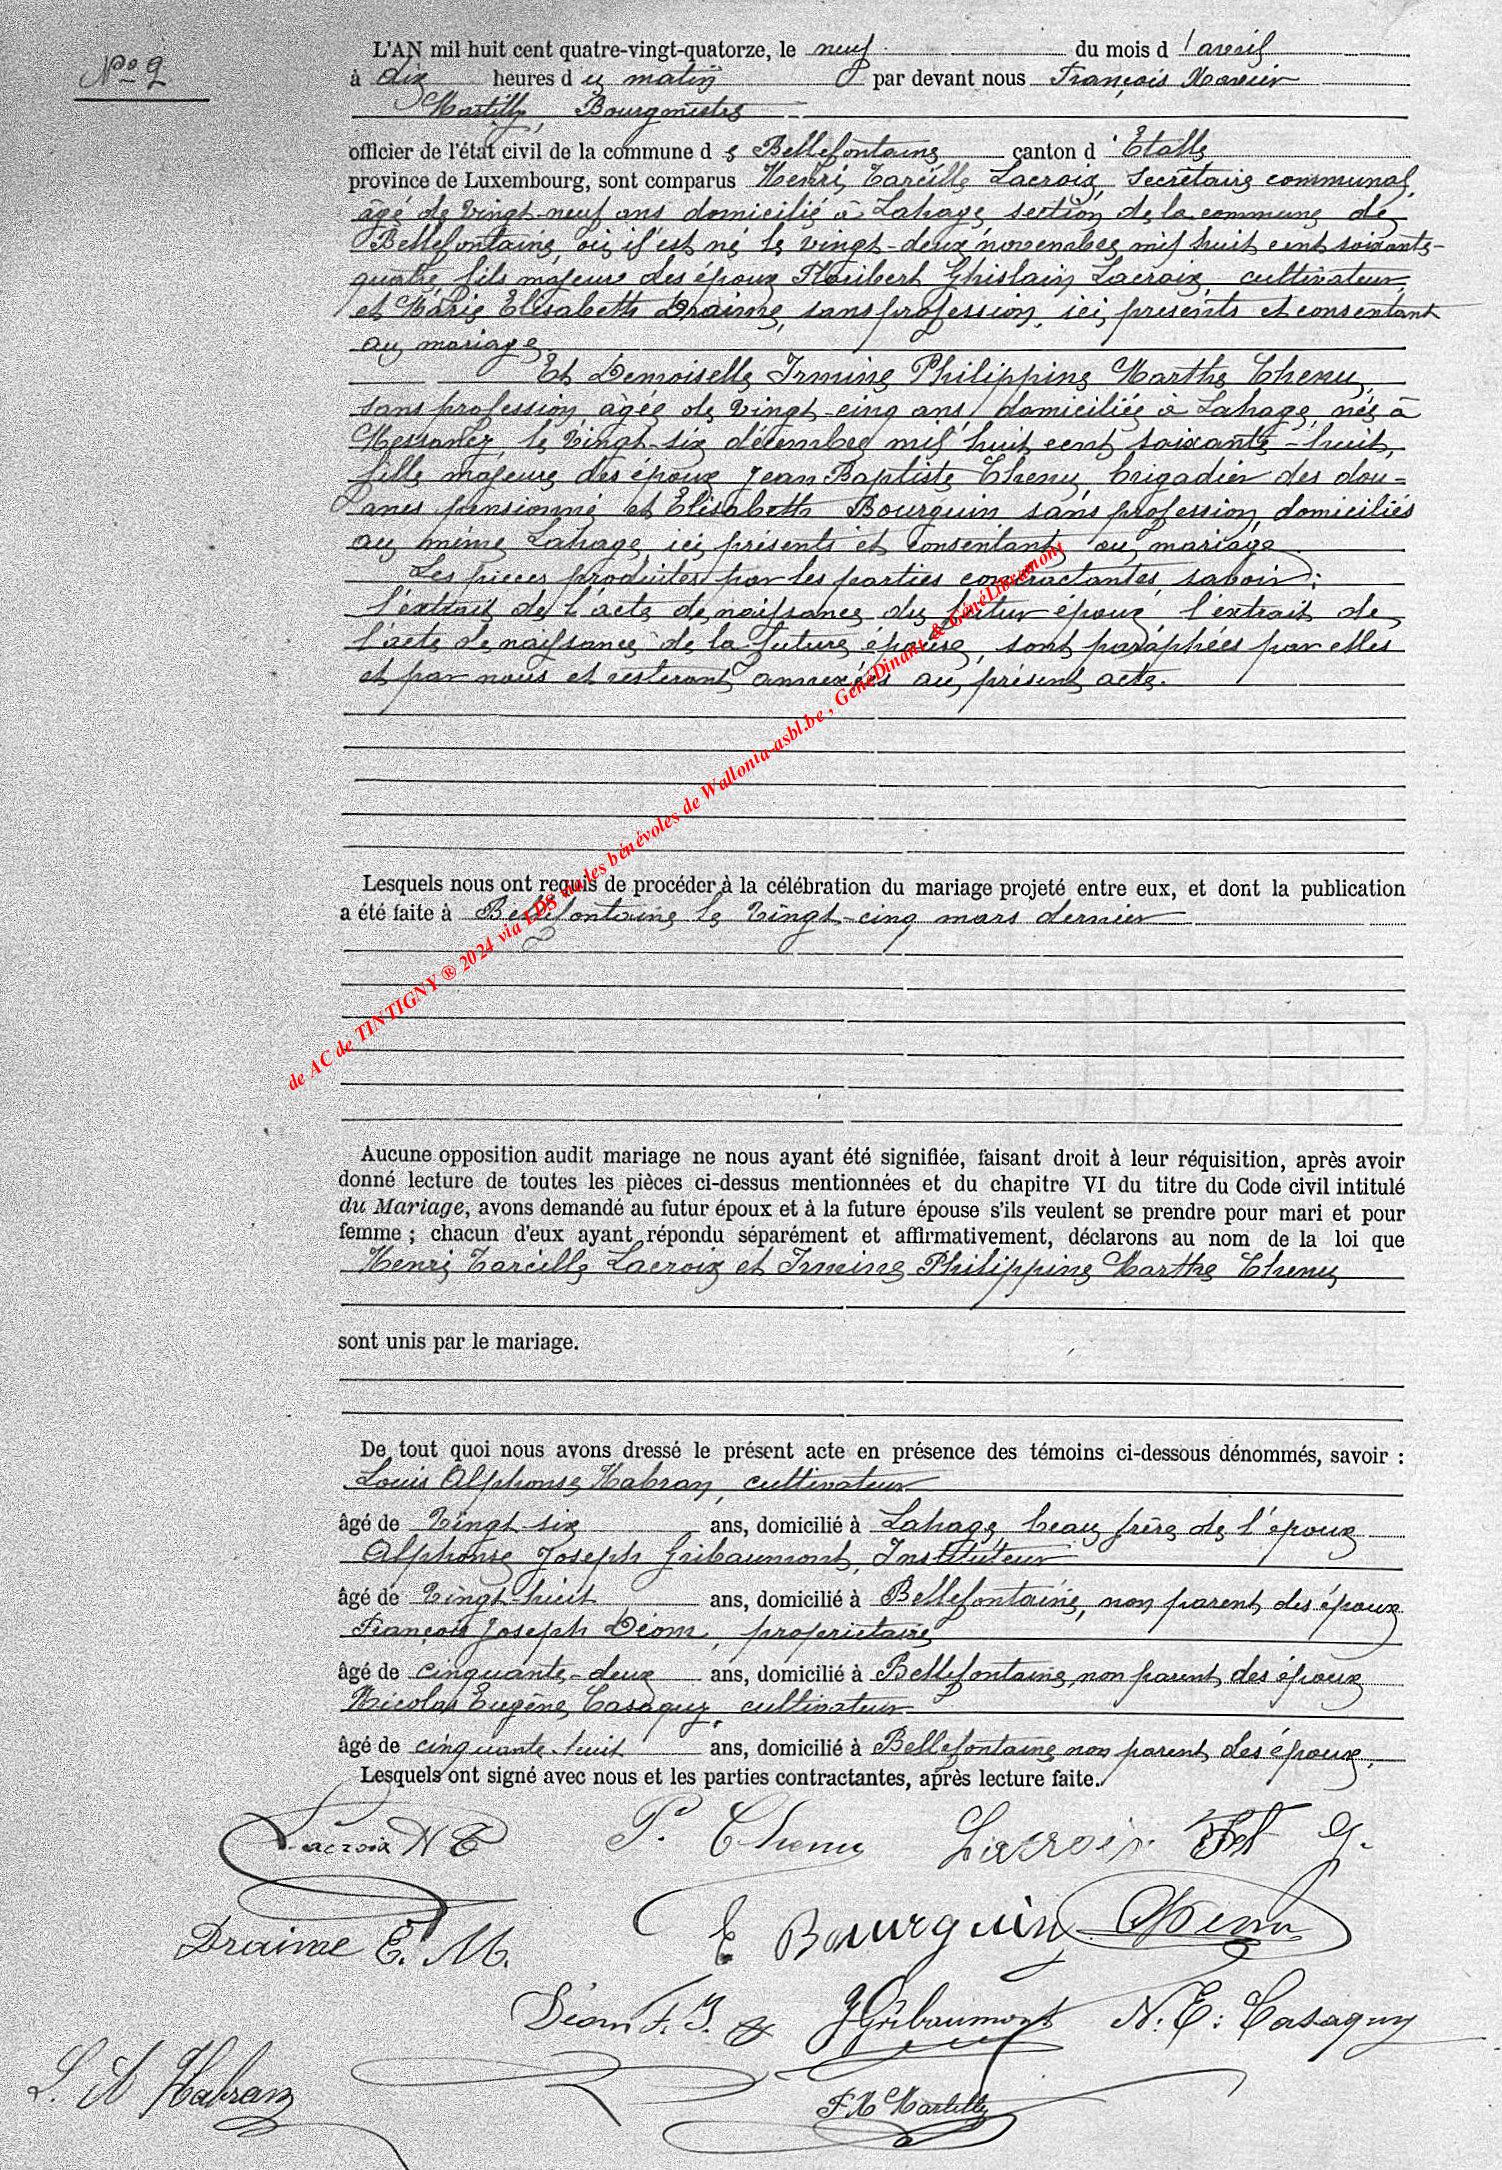 No 2
L'AN mil huit cent quatre-vingt-quatorze, le neuf du mois d'avril
à dix heures du matin par devant nous François Xavier
Martilly, Bourgmestre
officier de l'état civil de la commune de Bellefontaine canton d'Etalle
province de Luxembourg, sont comparus Henri Tarcille Lacroix, secrétaire communal,
âgé de vingt-neuf ans domicilié à Lahage section de la commune de
Bellefontaine, où il est né le vingt-deux novembre mil huit cent soixante-
quatre, fils majeur des époux Floribert Ghislain Lacroix, cultivateur,
et Marie Elisabeth Draime, sans profession, ici présents et consentant
au mariage
Et Demoiselle Irmine Philippine Marthe Theny,
sans profession, âgée de vingt-cinq ans, domiciliée à Lahage, née à
Messancy, le vingt-six décembre mil huit cent soixante-huit,
fille majeure des époux Jean Baptiste Theny, brigadier des dou=
anes pensionné et Elisabeth Bourguin sans profession, domiciliés
au même Lahage, ici présents et consentant au mariage.
Les pièces produites par les parties contractantes, savoir:
l'extrait de l'acte de naissance du futur époux, l'extrait de
l'acte de naissance de la future épouse, sont paraphées par elles
et par nous et resteront annexées au présent acte.
Lesquels nous ont requis de procéder à la célébration du mariage projeté entre eux, et dont la publication
a été faite à Bellefontaine le vingt-cinq mars dernier
de AC de TINTIGNY ® 2024 via FDS via les bénévoles de Wallonia-asbl.be , GénéDinant & GénéLibramont
Aucune opposition audit mariage ne nous ayant été signifiée, faisant droit à leur réquisition, après avoir
donné lecture de toutes les pièces ci-dessus mentionnées et du chapitre VI du titre du Code civil intitulé
du Mariage, avons demandé au futur époux et à la future épouse s'ils veulent se prendre pour mari et pour
femme ; chacun d'eux ayant répondu séparément et affirmativement, déclarons au nom de la loi que
Henri Tarcille Lacroix et Irmine Philippine Marthe Theny
sont unis par le mariage.
De tout quoi nous avons dressé le présent acte en présence des témoins ci-dessous dénommés, savoir :
Louis Alphonse Habran, cultivateur
âgé de vingt six ans, domicilié à Lahage, beau frère de l'époux
Alphonse Joseph Gribaumont, Instituteur
âgé de vingt-huit ans, domicilié à Bellefontaine, non parent des époux
François Joseph Déom, propriétaire
âgé de cinquante-deux ans, domicilié à Bellefontaine, non parent des époux
Nicolas Eugène Casaquy, cultivateur
âgé de cinquante-huit ans, domicilié à Bellefontaine non parent des époux.
Lesquels ont signé avec nous et les parties contractantes, après lecture faite.
Lacroix H T P. Theny Lacroix Flt G.
Draime E. M. E Bourguin Theny
Déom F. J. JGribaumont N. E. Casaquy
L. A Habran
F X Martilly